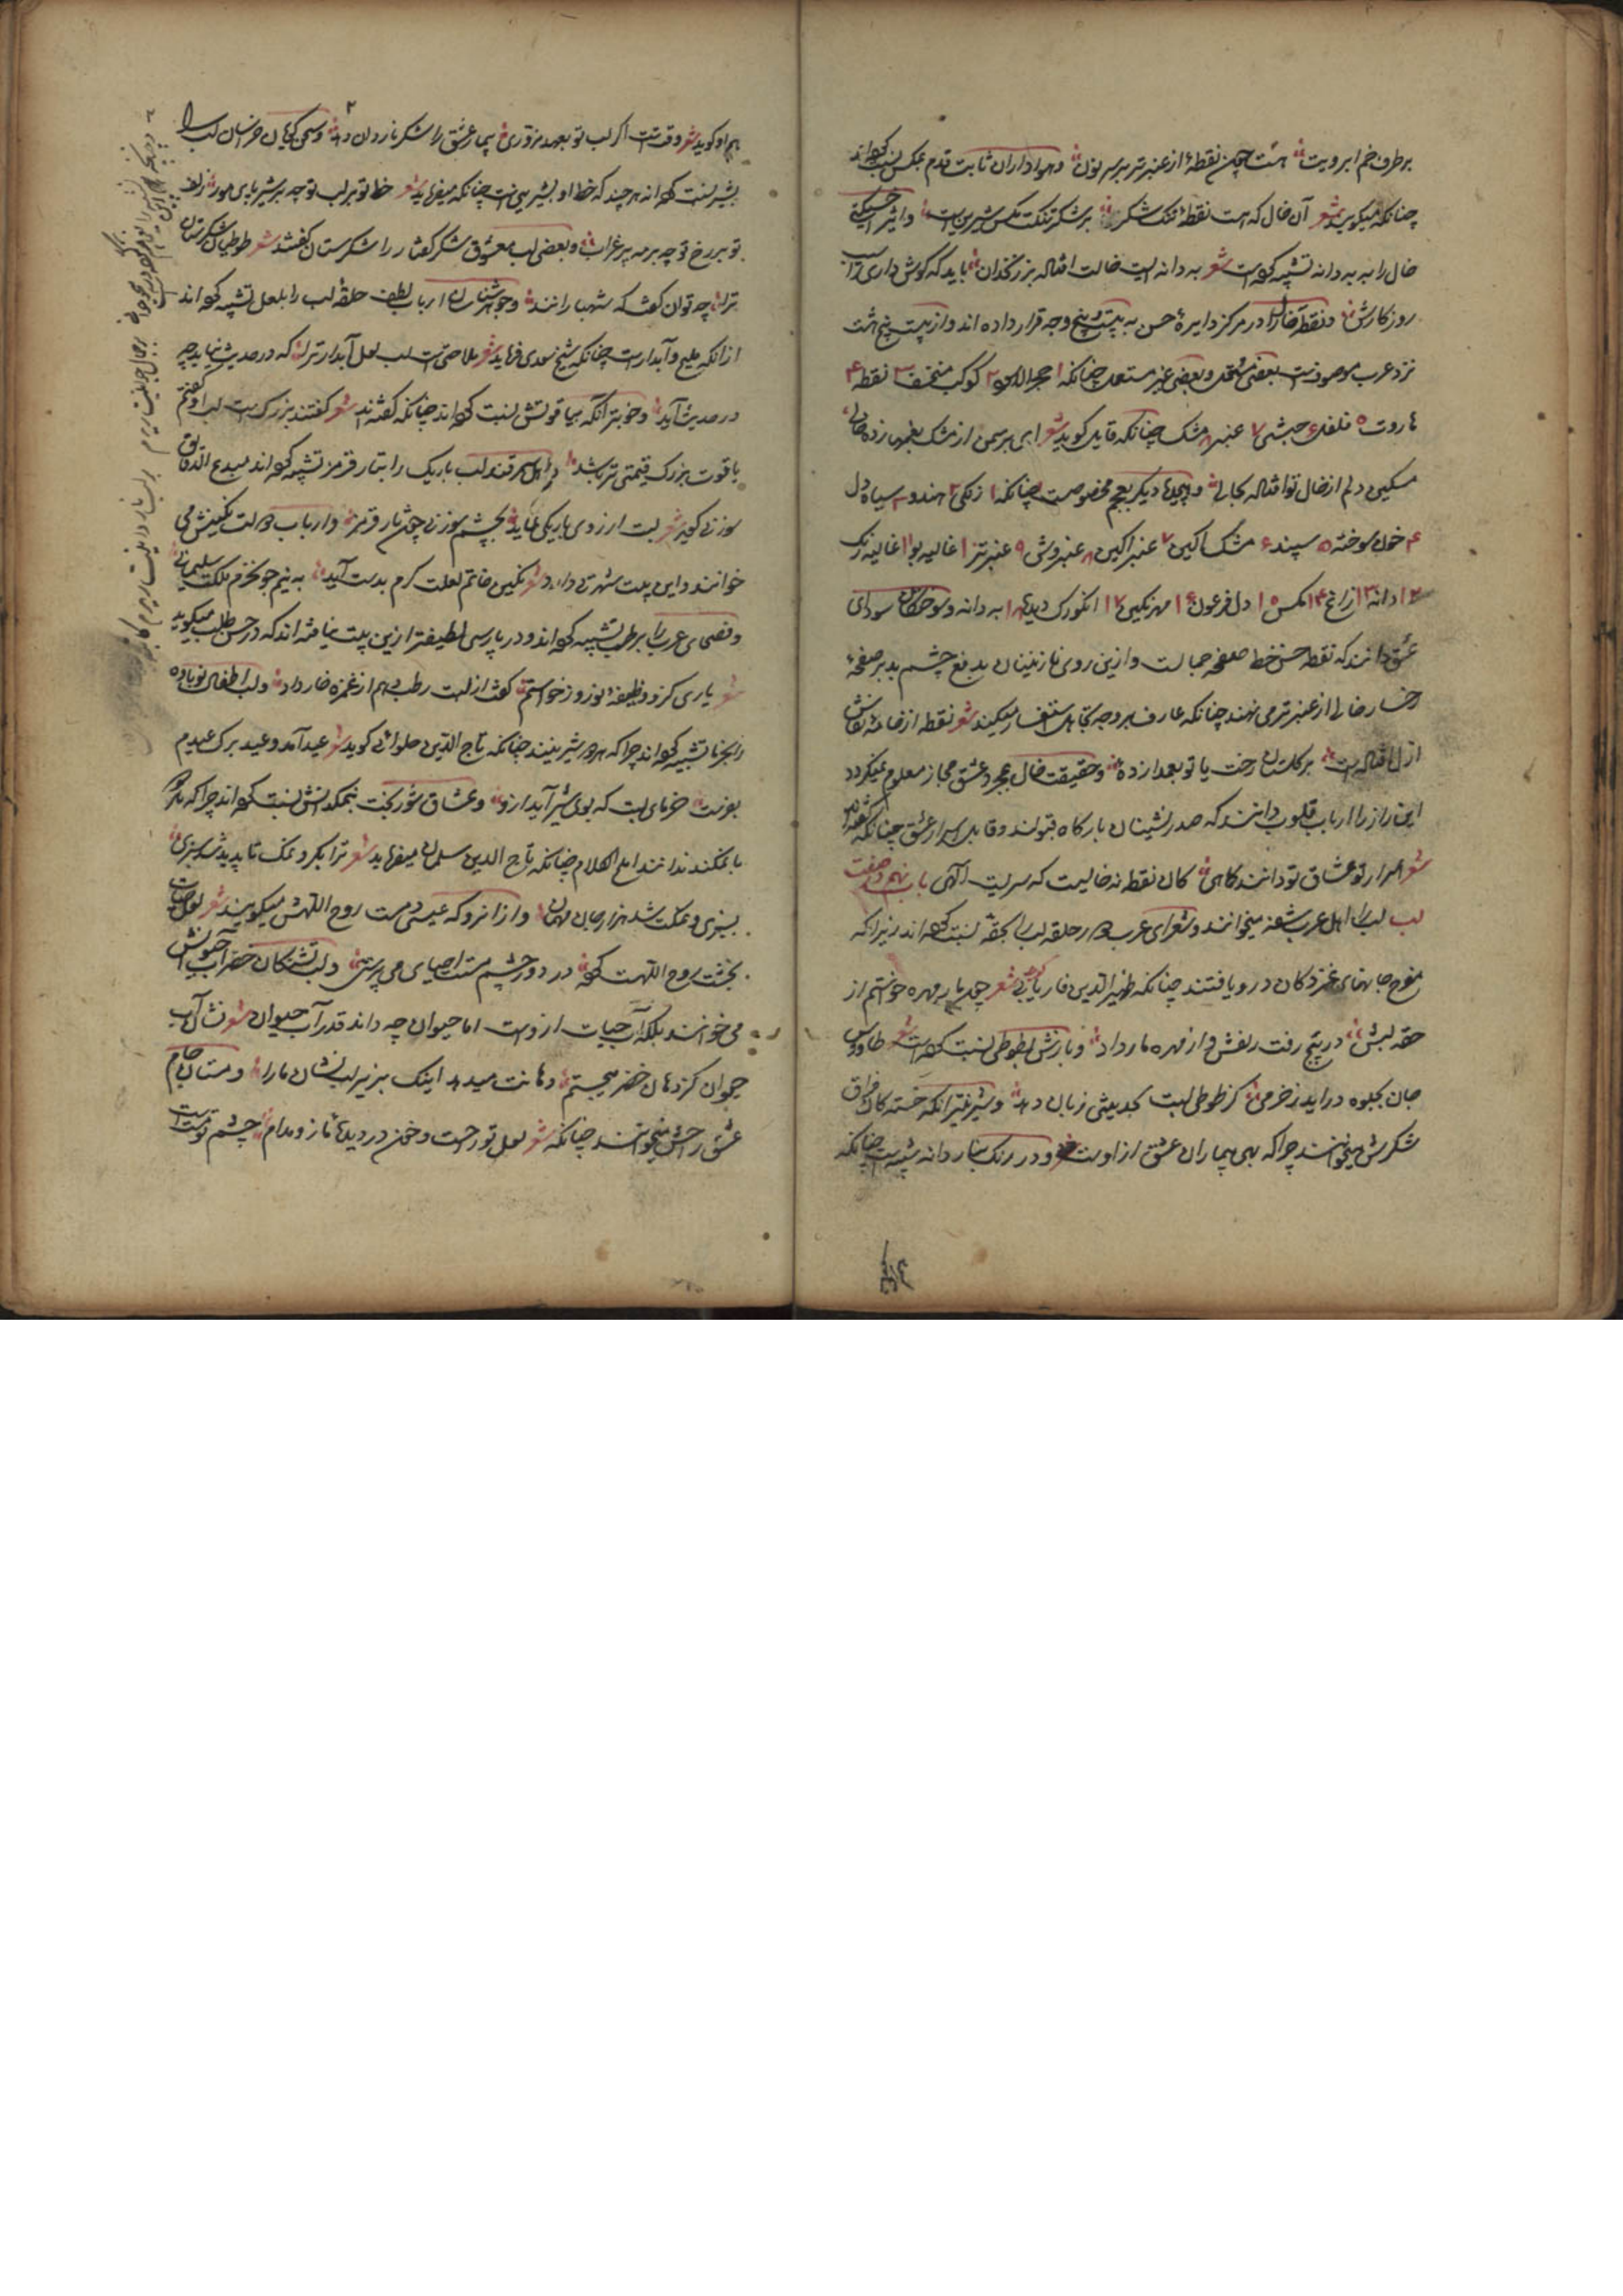 بر طرف خم ابرویت هست چون نقطهٔ از عنبر تر بر سر نون و هواداران ثابت قدم بمکس نسبت کرده‌اند
چنانکه میگوید شعر آن خال که هست نقطهٔ تنگ شکر بر شکر تنگت مگس شیرین است و اثیر اخسیکتی
خال را به به دانه تشبیه کرده است شعر به دانه ایست خالت افتاده بر زنخدان باید که گوش داری
روزگارش و نقطه خال را در مرکز دایرهٔ حسن به بیست و پنج وجه قرار داده اند و از بیست پنج هشت
نزد عرب موصوفست بعضی مستعمل و بعضی غیر مستعمل چنانکه ۱ حجر الاسود ۲ کوکب منخسف ۳ نقطه ۴
هاروت ۵ فلفل ۶ حبشی ۷ عنبر ۸ مشک چنانکه قایل گوید شعر ای بر سمن از مشک بعمدا زده خالی
مسکین دلم از خال تو افتاده بحالی و دیگر بعجم مخصوصست چنانکه ۱ زنگی ۲ هندو ۳ سیاه دل
۴ خون سوخته ۵ سپند ۶ مشک آگین ۷ عنبر آگین ۸ عنبر وش ۹ عنبر تر ۱۰ غالیه بو ۱۱ غالیه رنگ
۱۲ دانه ۱۳ زاغ ۱۴ مگس ۱۵ دل فرعون ۱۶ مهر نگین ۱۷ انگورک دیده ۱۸ به دانه و سودای
عشق دانند که نقطه حسن خط صفحه جمالست و ازین روی نازنینان بدفع چشم بد بر صفحهٔ
رخسار خالی از عنبر تر می نهند چنانکه عارف بر وجه تجاهل استفسار میکند شعر نقطه از خامهٔ نقاش
ازل افتاده است بر گلستان رخت یا تو بعمدا زدهٔ و حقیقت خال بمجرد عشق مجاز معلوم نمیگردد
این راز را ارباب قلوب دانند که صدر نشینان بارگاه قبولند و قابل اسرار عشق چنانکه گفته‌اند
شعر اسرار تو عشاق تو دانند کماهی کان نقطه نه خالیست که سریست الهی باب نهم در صفت
لب لب را اهل عرب شفه میخوانند و شعرای عرب حلقه لب را بحقه نسبت کرده اند زیرا که
مفرح جانهای غمزدگان درو یافتند چنانکه ظهیر الدین فاریابی گوید شعر چون مار مهره خواستم از
حقه لبش در پیچ رفت زلفش و از مهره مار داد و بازش بطوطی نسبت کرده است شعر طاووس
جان بجلوه در آید ز خرمی گر طوطی لبت بحدیثی زبان دهد و شیرین‌تر آنکه خسته‌گان فراق
شکرش میخوانند چرا که بهی بیماران عشق از اوست و در رنگ بنار دانه شبیه است چنانکه
هم او گوید شعر وقت است اگر لب تو بعهد مزوری بیمار عشق را شکر ناردان دهد و سخن گویان خراسان لب را
بشیر نسبت کرده اند هر چند که خط او بشیرینی است چنانکه میفرماید شعر خط تو بر لب تو چه بر شیر پای مور زلف
تو بر رخ تو چه بر مه پر غراب و بعضی لب معشوق شکر گفتار را شکرستان گفتند شعر طوطیان شکرستان
ترا چه توان گفت که شهباز انند و جوهر شناسان ارباب لطف حلقهٔ لب را بلعل تشبیه کرده اند
از آنکه ملیح و آبدار است چنانکه شیخ سعدی فرماید شعر ملاحتی است لب لعل آبدار ترا که در حدیث نیاید چو
در حدیث آید و خوبتر آنکه بیاقوتش نسبت کرده اند چنانکه گفته‌اند شعر گفتند بزرگ است لب او گفتم
یاقوت بزرگ قیمتی تر باشد و اهل سمرقند لب باریک را بتار قرمز تشبیه کرده اند مبدع الدقایق
سوزنی گوید شعر لبت ار زوی باریکی نماید بچشم سوزنی چون تار قرمز و ارباب دولت نگینش می
خوانند و این بیت شهرتی دارد شعر نگین خاتم لعلت گرم بدست آید به نیم جو نخرم ملکت سلیمانی
و فصحای عرب را برطب تشبیه کرده اند و در پارسی لطیفتر ازین بیت نیافته اند که در حسن طلب میگوید
شعر یاری کزو وظیفهٔ نوروز خواستم گفت از لبت رطب دهم از غمزه خار داد و لب اطفال نو باوه
را بخرما تشبیه کرده اند چرا که هر دو شیرینند چنانکه تاج الدین حلوائی گوید شعر عید آمد و عید برگ عیدیم
بفرست خرمای لبت که بوی شیر آید ازو و عشاق شوربخت بنمکدانش نسبت کرده اند چرا که هر دو
با نمکند ملح الکلام چنانکه تاج الدین سلمان میفرماید شعر ترا بگرد نمک تا پدید شد سبزی
بسبزی و نمکت شد هزار جان مهمان و از آنرو که عیسی دمست روح اللهش میگویند شعر
بخشت روح اللهست گوئی در دور چشم مستت احیای می پرستی و لب تشنگان خضر آب حیوانش
می خوانند بلکه آب حیات ازوست اما حیوان چه داند قدر آب حیوان شعر نشان آب
حیوان کز دهان خضر میجستم دهانت میدهد اینک بزیر لب نشان ما را و مستان جام
عشق راحش میخوانند چنانکه شعر لعل تو راحست و خون در دیدها ناز و مدام چشم تو مست